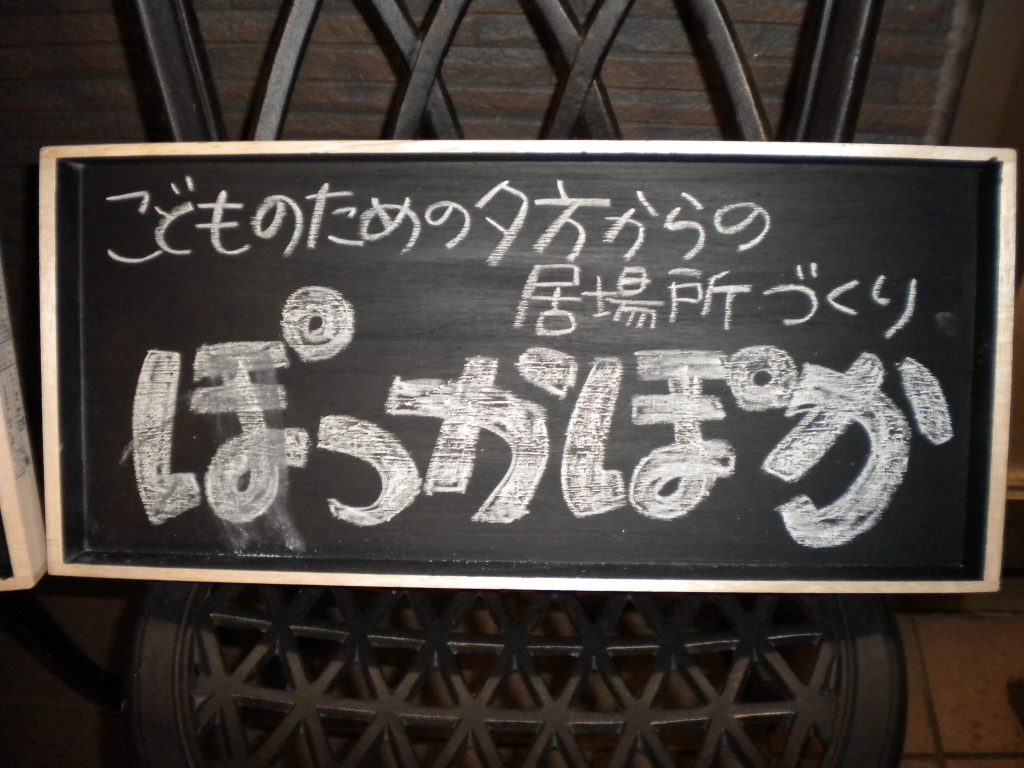 こどものための夕方からの
居場所づくり
ぽっかぽか